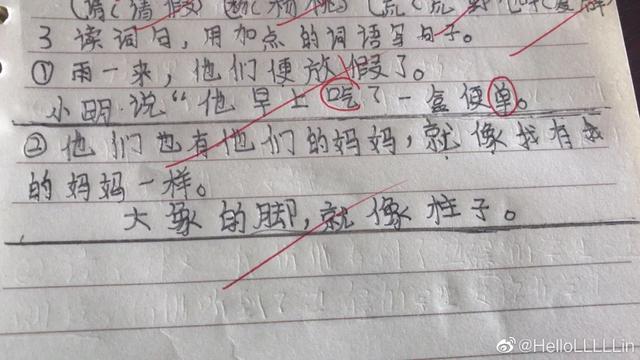 3 读词句，用加点的词语写句子。
① 雨一来，他们便放假了。
小明说“他早上吃了一盒便单。
② 他们也有他们的妈妈，就像我有我
的妈妈一样。
大象的脚，就像柱子。
@HelloLLLLLin